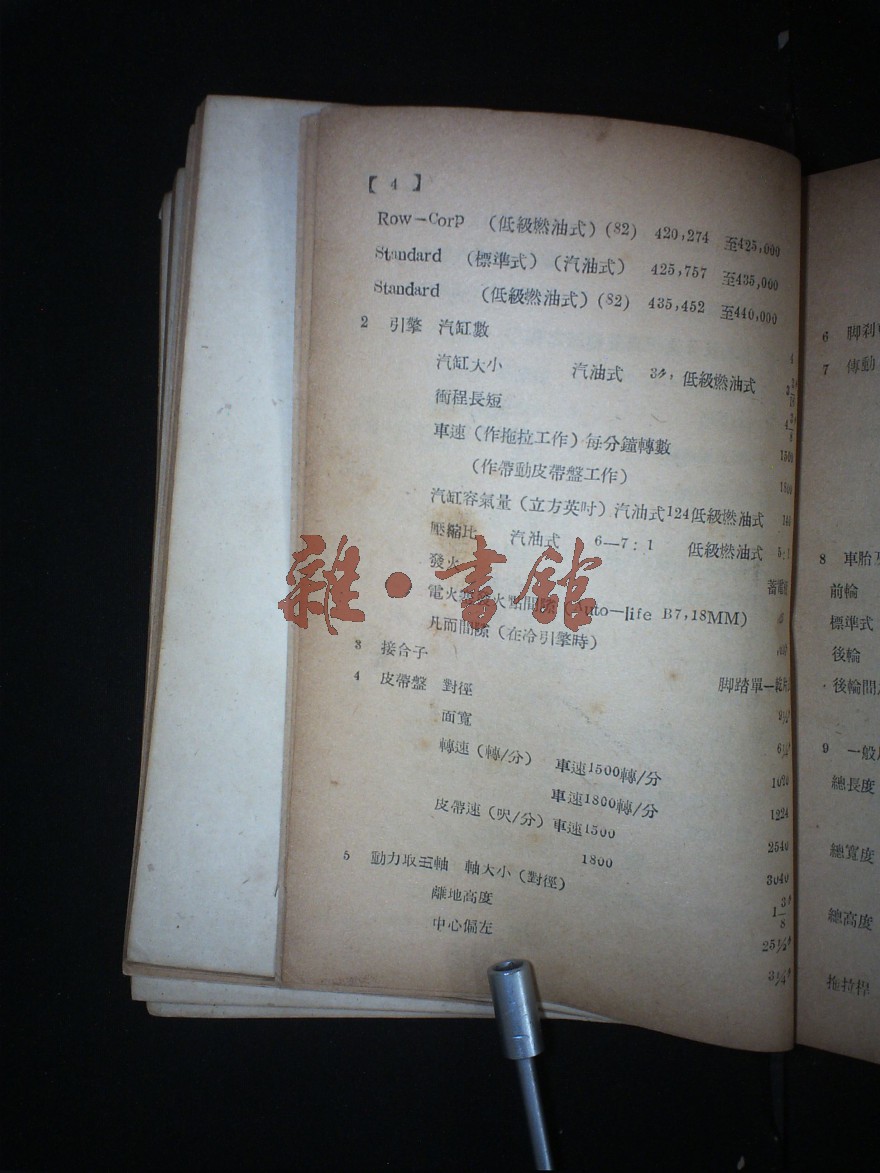 【 4 】
Row—Corp (低級燃油式) (82) 420,274 至425,000
Standard (標準式) (汽油式) 425,757 至435,000
Standard (低級燃油式) (82) 435,452 至440,000
2 引擎 汽缸數 4
汽缸大小 汽油式 3〃, 低級燃油式
衝程長短
車速 (作拖拉工作) 每分鐘轉數 1500
(作帶動皮帶盤工作) 1800
汽缸容氣量 (立方英吋) 汽油式124低級燃油式
壓縮比 汽油式 6—7 : 1 低級燃油式 5 : 1
發火 蓄電
電火 火點間隙 (Auto—life B7,18MM)
凡而間隙 (在冷引擎時)
3 接合子 脚踏單一
4 皮帶盤 對徑
面寬
轉速 (轉/分) 車速1500轉/分 1020
車速1800轉/分 1224
皮帶速 (呎/分) 車速1500 2540
1800 3040
5 動力取 軸 軸大小 (對徑) 1 3/8〃
離地高度
中心偏左
雜·書館
6 脚刹
7 傳動
8 車胎
前輪
標準式
後輪
後輪間
9 一般
總長度
總寬度
總高度
拖拉桿